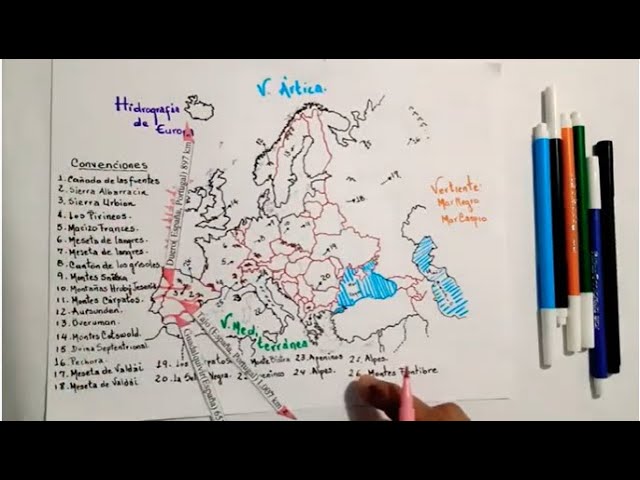 V. Ártica.
Hidrografía
de
Europa
Vertiente:
Mar Negro
Mar Caspio
Convenciones
1. Cañada de las fuentes
2. Sierra Albarracin
3. Sierra Urbion
4. Los Pirineos.
5. Macizo Frances.
6. Meseta de langres.
7. Meseta de langres.
8. Cantón de los grisoles
9. Montes
10. Montañas Hrubý Jeseník
11. Montes Cárpatos.
12. Aursunden.
13. Øveruman.
14. Montes Cotswold.
15. Dvina Septentrional
16. Pechora.
17. Meseta de Valdái
18. Meseta de Valdái.
19. Los 23. Apeninos 25. Alpes.
20. la Selva Negra. 24. Alpes. 26. Montes Fontibre
V. Mediterránea
Duero (España, Portugal) 897 km
Tajo (España, Portugal) 1.007 km
Guadalquivir (España) 65